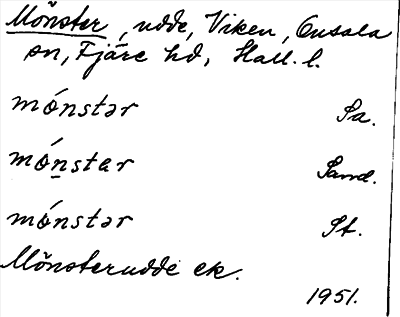 Mönster, udde, Viken, Onsala
sn, Fjäre hd, Hall. l.
mónstər Sa.
móṉstər Sand.
mónstər St.
Mönsterudde ek.
1951.